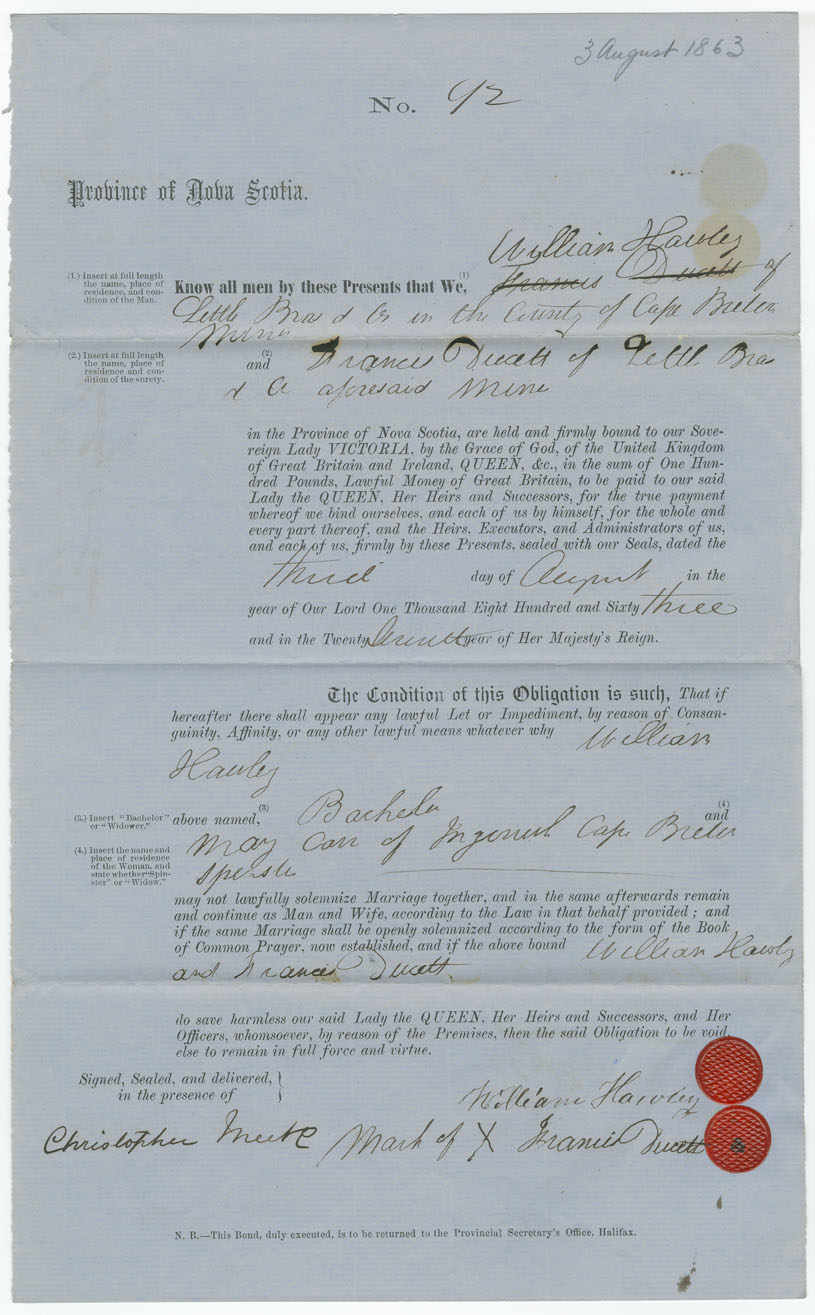 3 August 1863
No. 92
Province of Nova Scotia.
William Hawley
(1.) Insert at full length
the name, place of
residence, and con-
dition of the Man.
Know all men by these Presents that We,(1) Francis Ducett of
Little Bras d Or in the County of Cape Breton
Miner
(2.) Insert at full length
the name, place of
residence and con-
dition of the surety.
and (2) Francis Ducett of Little Bras
d O aforesaid Miner
in the Province of Nova Scotia, are held and firmly bound to our Sove-
reign Lady VICTORIA, by the Grace of God, of the United Kingdom
of Great Britain and Ireland, QUEEN, &c., in the sum of One Hun-
dred Pounds, Lawful Money of Great Britain, to be paid to our said
Lady the QUEEN, Her Heirs and Successors, for the true payment
whereof we bind ourselves, and each of us by himself, for the whole and
every part thereof, and the Heirs, Executors, and Administrators of us,
and each of us, firmly by these Presents, sealed with our Seals, dated the
third day of August in the
year of Our Lord One Thousand Eight Hundred and Sixty three
and in the Twenty year of Her Majesty's Reign.
The Condition of this Obligation is such, That if
hereafter there shall appear any lawful Let or Impediment, by reason of Consan-
guinity, Affinity, or any other lawful means whatever why William
Hawley
(3.) Insert "Bachelor"
or "Widower."
above named,(3) Bachelor (4) and
(4.) Insert the name and
place of residence
of the Woman, and
state whether "Spin-
ster" or "Widow."
May Carr of Ingonish Cape Breton
Spinster
may not lawfully solemnize Marriage together, and in the same afterwards remain
and continue as Man and Wife, according to the Law in that behalf provided; and
if the same Marriage shall be openly solemnized according to the form of the Book
of Common Prayer, now established, and if the above bound William Hawley
and Francis Ducett
do save harmless our said Lady the QUEEN, Her Heirs and Successors, and Her
Officers, whomsoever, by reason of the Premises, then the said Obligation to be void,
else to remain in full force and virtue.
Signed, Sealed, and delivered,
in the presence of
William Hawley
Christopher Meek Mark of X Francis Ducett
N. B.—This Bond, duly executed, is to be returned to the Provincial Secretary's Office, Halifax.